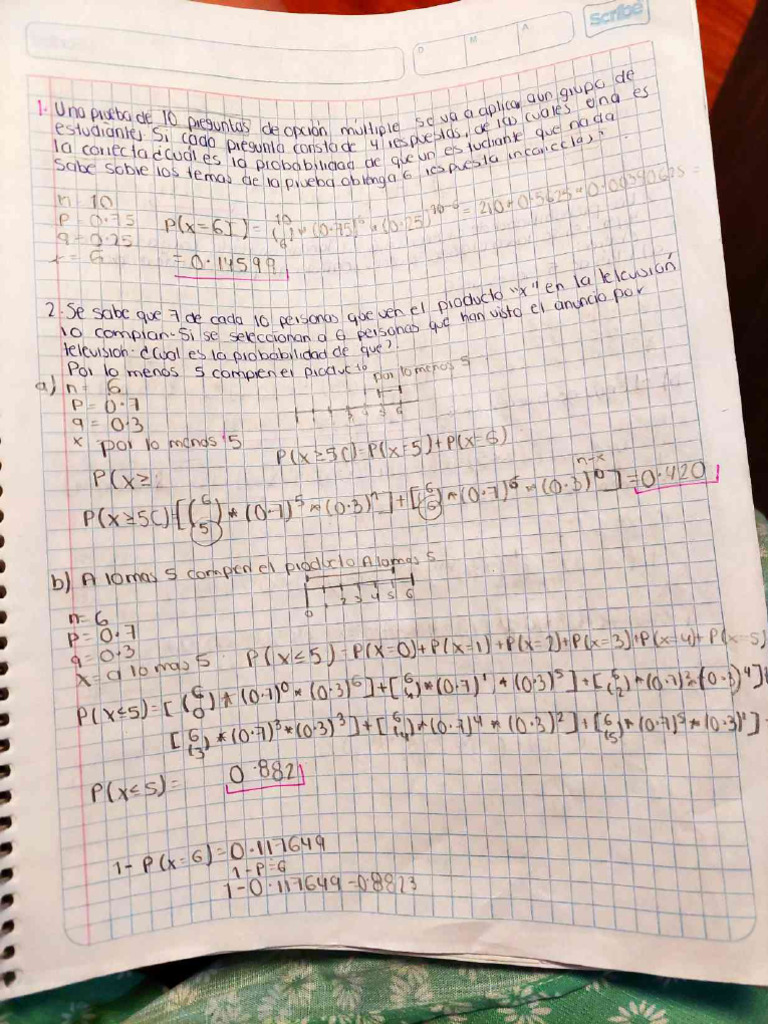 Scribe
D M A
1. Una prueba de 10 preguntas de opción múltiple se va a aplicar a un grupo de
estudiantes. Si cada pregunta consta de 4 respuestas, de las cuales una es
la correcta ¿cuál es la probabilidad de que un estudiante que nada
sabe sobre los temas de la prueba obtenga 6 respuesta incorrectas?
n = 10
p = 0.75
q = 0.25
x = 6
P(x=6I) = (10 6) * (0.75)^6 * (0.25)^10-6 = 210 * 0.5625 * 0.00390625 =
= 0.14599
2. Se sabe que 7 de cada 10 personas que ven el producto "x" en la television
lo compran. Si se seleccionan a 6 personas que han visto el anuncio por
television. ¿cual es la probabilidad de que?
Por lo menos 5 compren el producto
por lo menos 5
a) n = 6
p = 0.7
q = 0.3
x por lo menos 5
P(x≥5C) = P(x=5) + P(x=6)
P(x≥
P(x≥5C) [(6 5) * (0.7)^5 * (0.3)^n] + [(6 6) * (0.7)^6 * (0.3)^0] = 0.420
n-x
b) A lo mas 5 compren el producto A lo mas 5
0 1 2 3 4 5 6
n = 6
p = 0.7
q = 0.3
x = a lo mas 5 P(x≤5) = P(x=0) + P(x=1) + P(x=2) + P(x=3) + P(x=4) + P(x=5)
P(x≤5) = [(6 0) * (0.7)^0 * (0.3)^6] + [(6 1) * (0.7)^1 * (0.3)^5] + [(6 2) * (0.7)^2 * (0.3)^4] +
[(6 3) * (0.7)^3 * (0.3)^3] + [(6 4) * (0.7)^4 * (0.3)^2] + [(6 5) * (0.7)^5 * (0.3)^1]
P(x≤5) = 0.882
1 - P(x=6) = 0.117649
1 - P=6
1 - 0.117649 = 0.8823